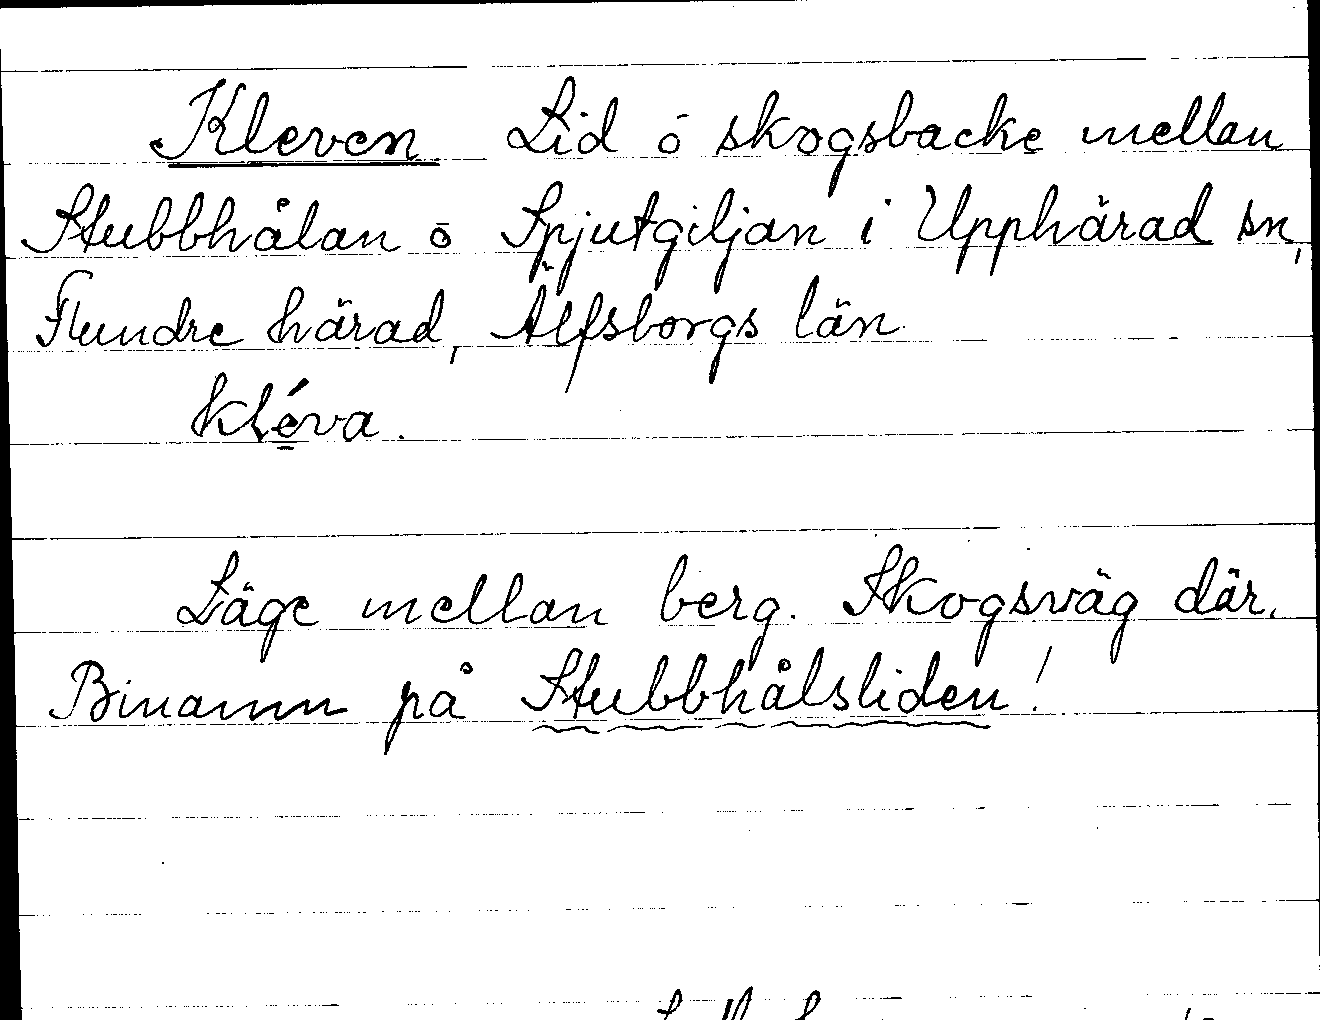 Kleven Lid ō skogsbacke mellan
Stubbhålan ō Spjutgiljan i Upphärad sn,
Flundre härad, Älfsborgs län
kléva.
Läge mellan berg. Skogsväg där.
Binamn på Stubbhålsliden!